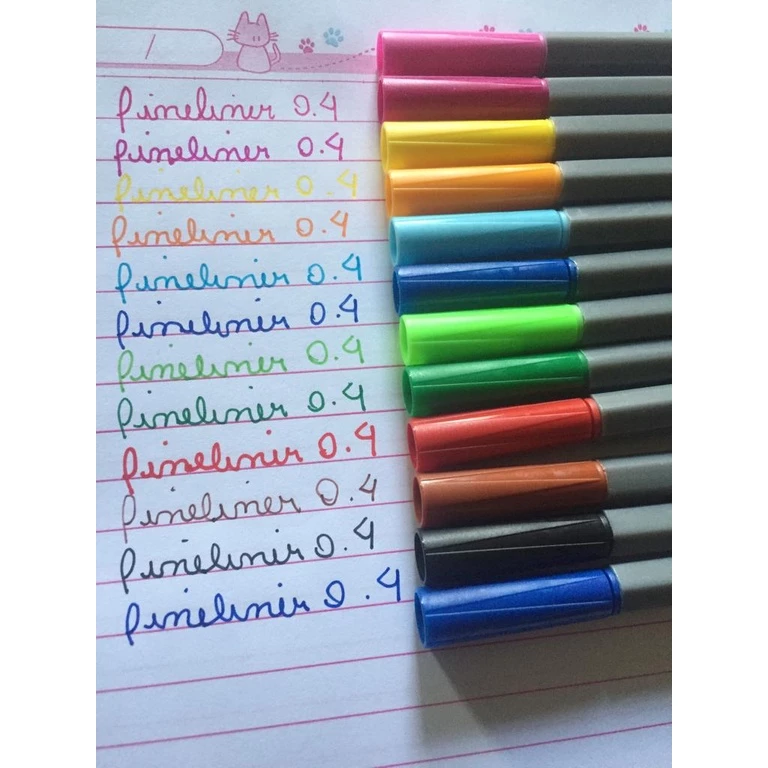 /
fineliner 0.4
fineliner 0.4
fineliner 0.4
fineliner 0.4
fineliner 0.4
fineliner 0.4
fineliner 0.4
fineliner 0.4
fineliner 0.4
fineliner 0.4
fineliner 0.4
fineliner 0.4